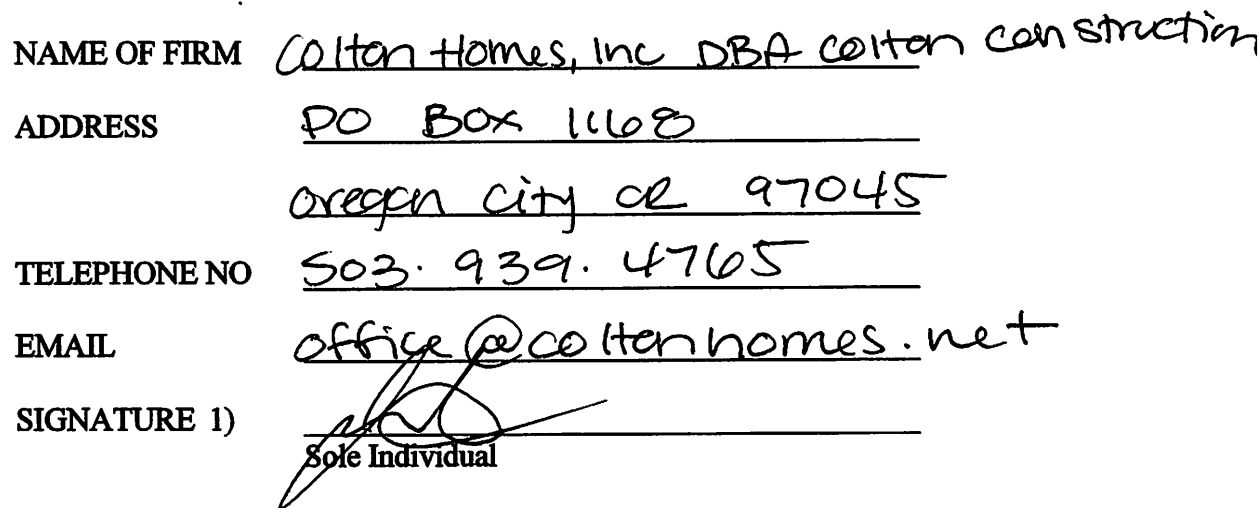 NAME OF FIRM Colton Homes, Inc DBA Colton Construction
ADDRESS PO BOX 1168
Oregon City OR 97045
TELEPHONE NO 503. 939. 4765
EMAIL office@coltonhomes.net
SIGNATURE 1)
Sole Individual